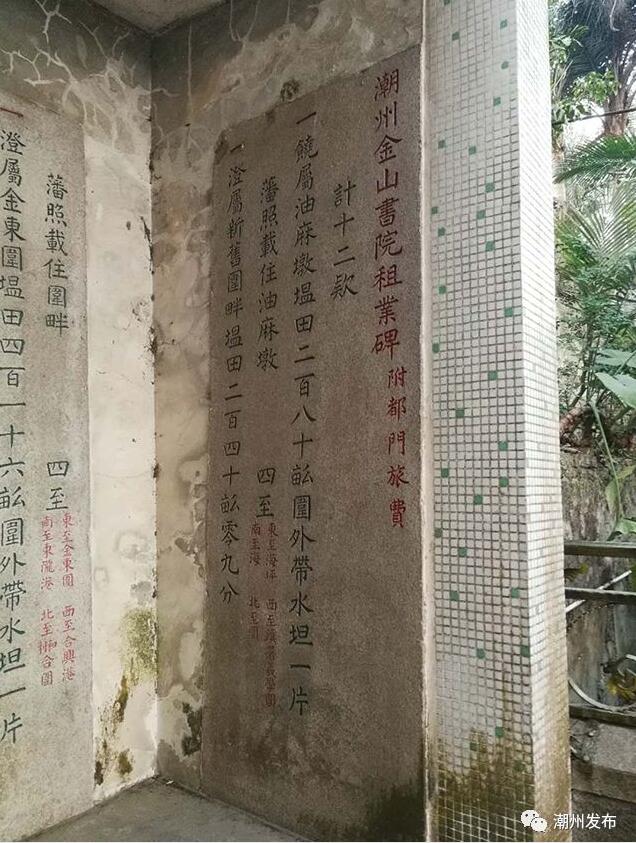 潮州金山書院租業碑附都門旅費
計十二款
一饒屬油麻墩塭田二百八十畝圍外帶水坦一片
藩照載住油麻墩 四至 東至海坪 南至海 北至圍
一澄屬新舊圍畔塭田二百四十畝零九分
藩照載住圍畔 四至 東至金東圍 西至合興港 南至東隴港 北至
一澄屬金東圍塭田四百一十六畝圍外帶水坦一片
潮州发布